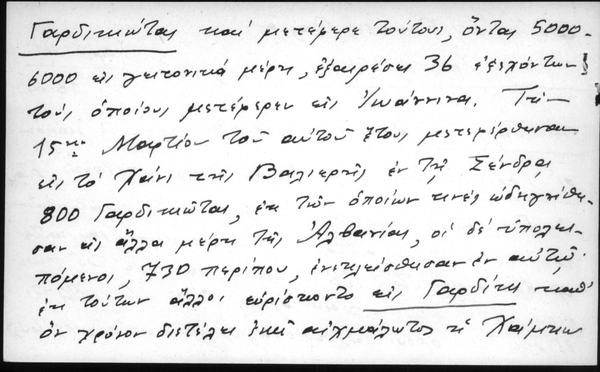 Γαρδικιώτας καί μετέφερε τούτους, ὄντας 5000-
6000 εἰς γειτονικά μέρη, ἐξαιρέσει 36 ἐξεχόντων
τούς ὁποίους μετέφερεν εἰς Ἰωάννινα. Τήν
15ην Μαρτίου τοῦ αὐτοῦ ἔτους μετεφέρθησαν
εἰς τό Χάνι τῆς Βαλιερῆς ἐν τῇ Σένδρᾳ
800 Γαρδικιῶται, ἐκ τῶν ὁποίων τινές ὡδηγήθη-
σαν εἰς ἄλλα μέρη τῆς Ἀλβανίας, οἱ δέ ὑπολει-
πόμενοι, 730 περίπου, ἐνεκλείσθησαν ἐν αὐτῷ.
ἐκ τούτων ἄλλοι εὑρίσκοντο εἰς Γαρδίκι καθ'
ὅν χρόνον διετέλει ἐκεῖ αἰχμάλωτος ἡ Χάιμκω